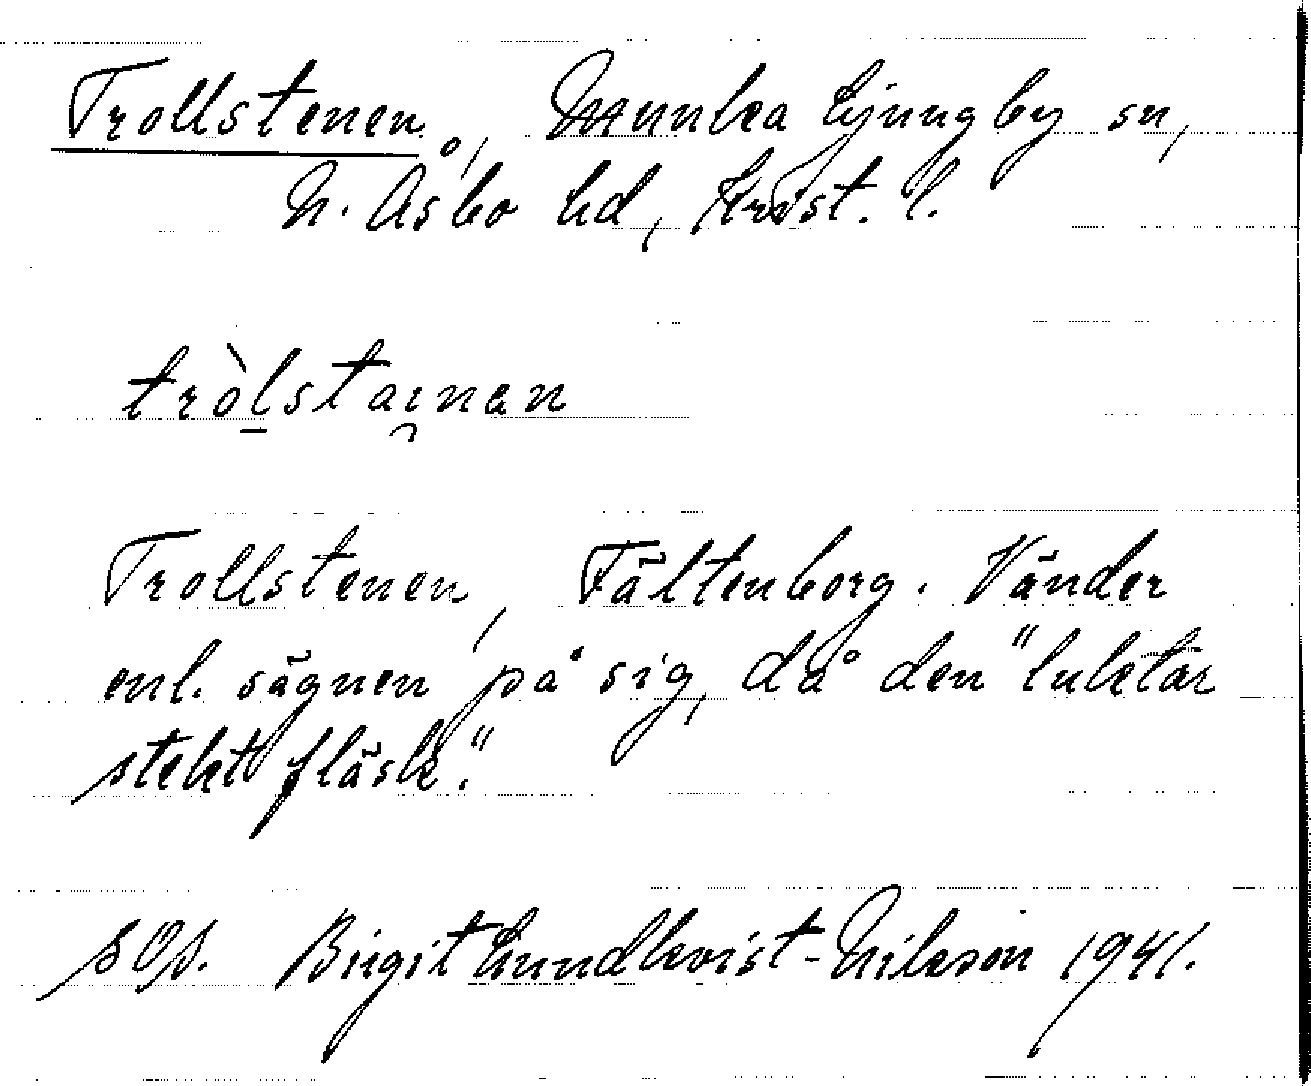 Trollstenen, Munka Ljungby sn,
N. Åsbo hd, Krist. l.
tròlstaınan
Trollstenen, Fältenborg. Vänder
enl. sägnen på sig, då den "luktar
stekt fläsk."
SOS. Birgit Lundkvist-Nilsson 1941.